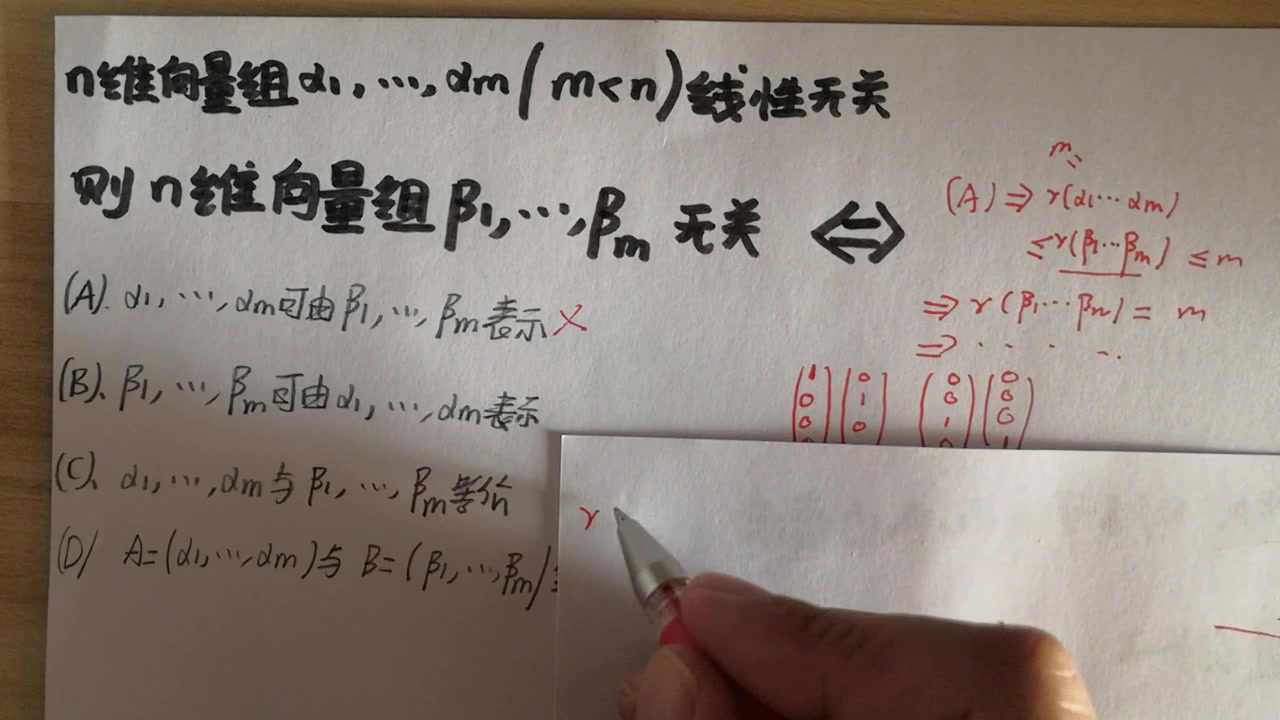 n维向量组α1,…,αm(m<n)线性无关
则n维向量组β1,…,βm 无关 ⇔
(A). α1,…,αm可由β1,…,βm表示 ×
(B)、β1,…,βm可由α1,…,αm表示
(C)、α1,…,αm与β1,…,βm等价
(D) A=(α1,…,αm)与 B=(β1,…,βm)
m=
(A) ⇒ r(α1…αm)
≤r(β1…βm) ≤ m
⇒ r(β1…βm) = m
⇒ . . . . .
1 0 0 0
0 1 0 0
0 0 1 0
r